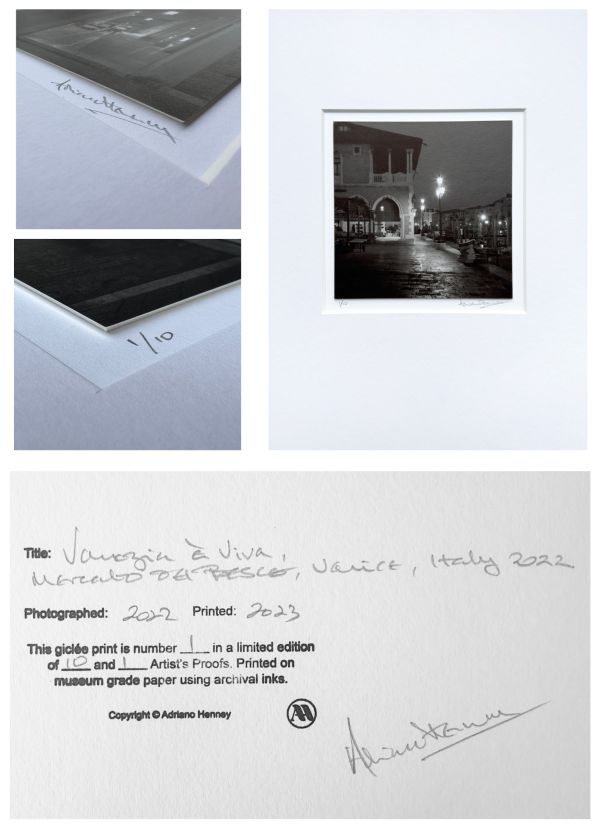 Adriano Henney
1/10
1/10
Adriano Henney
Title: Venezia è Viva,
Mercato del Pesce, Venice, Italy 2022
Photographed: 2022 Printed: 2023
This giclée print is number 1 in a limited edition
of 10 and 1 Artist's Proofs. Printed on
museum grade paper using archival inks.
Copyright © Adriano Henney
AH
Adriano Henney